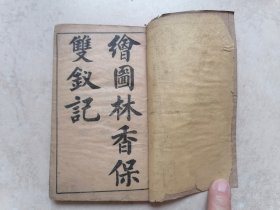 繪圖林香保
雙釵記